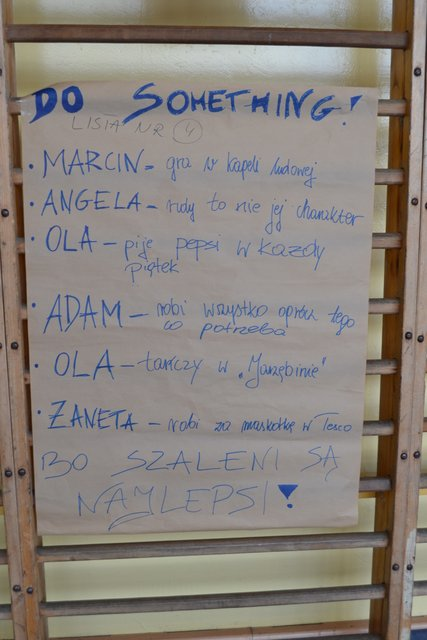 DO SOMETHING!
LISTA NR 4
• MARCIN - gra w kapeli ludowej
• ANGELA - rudy to nie jej charakter
• OLA - pije pepsi w każdy
piątek
• ADAM - robi wszystko oprócz tego
co potrzeba
• OLA - tańczy w „Jarzębinie"
• ŻANETA - robi za maskotkę w Tesco
BO SZALENI SĄ
NAJLEPSI!